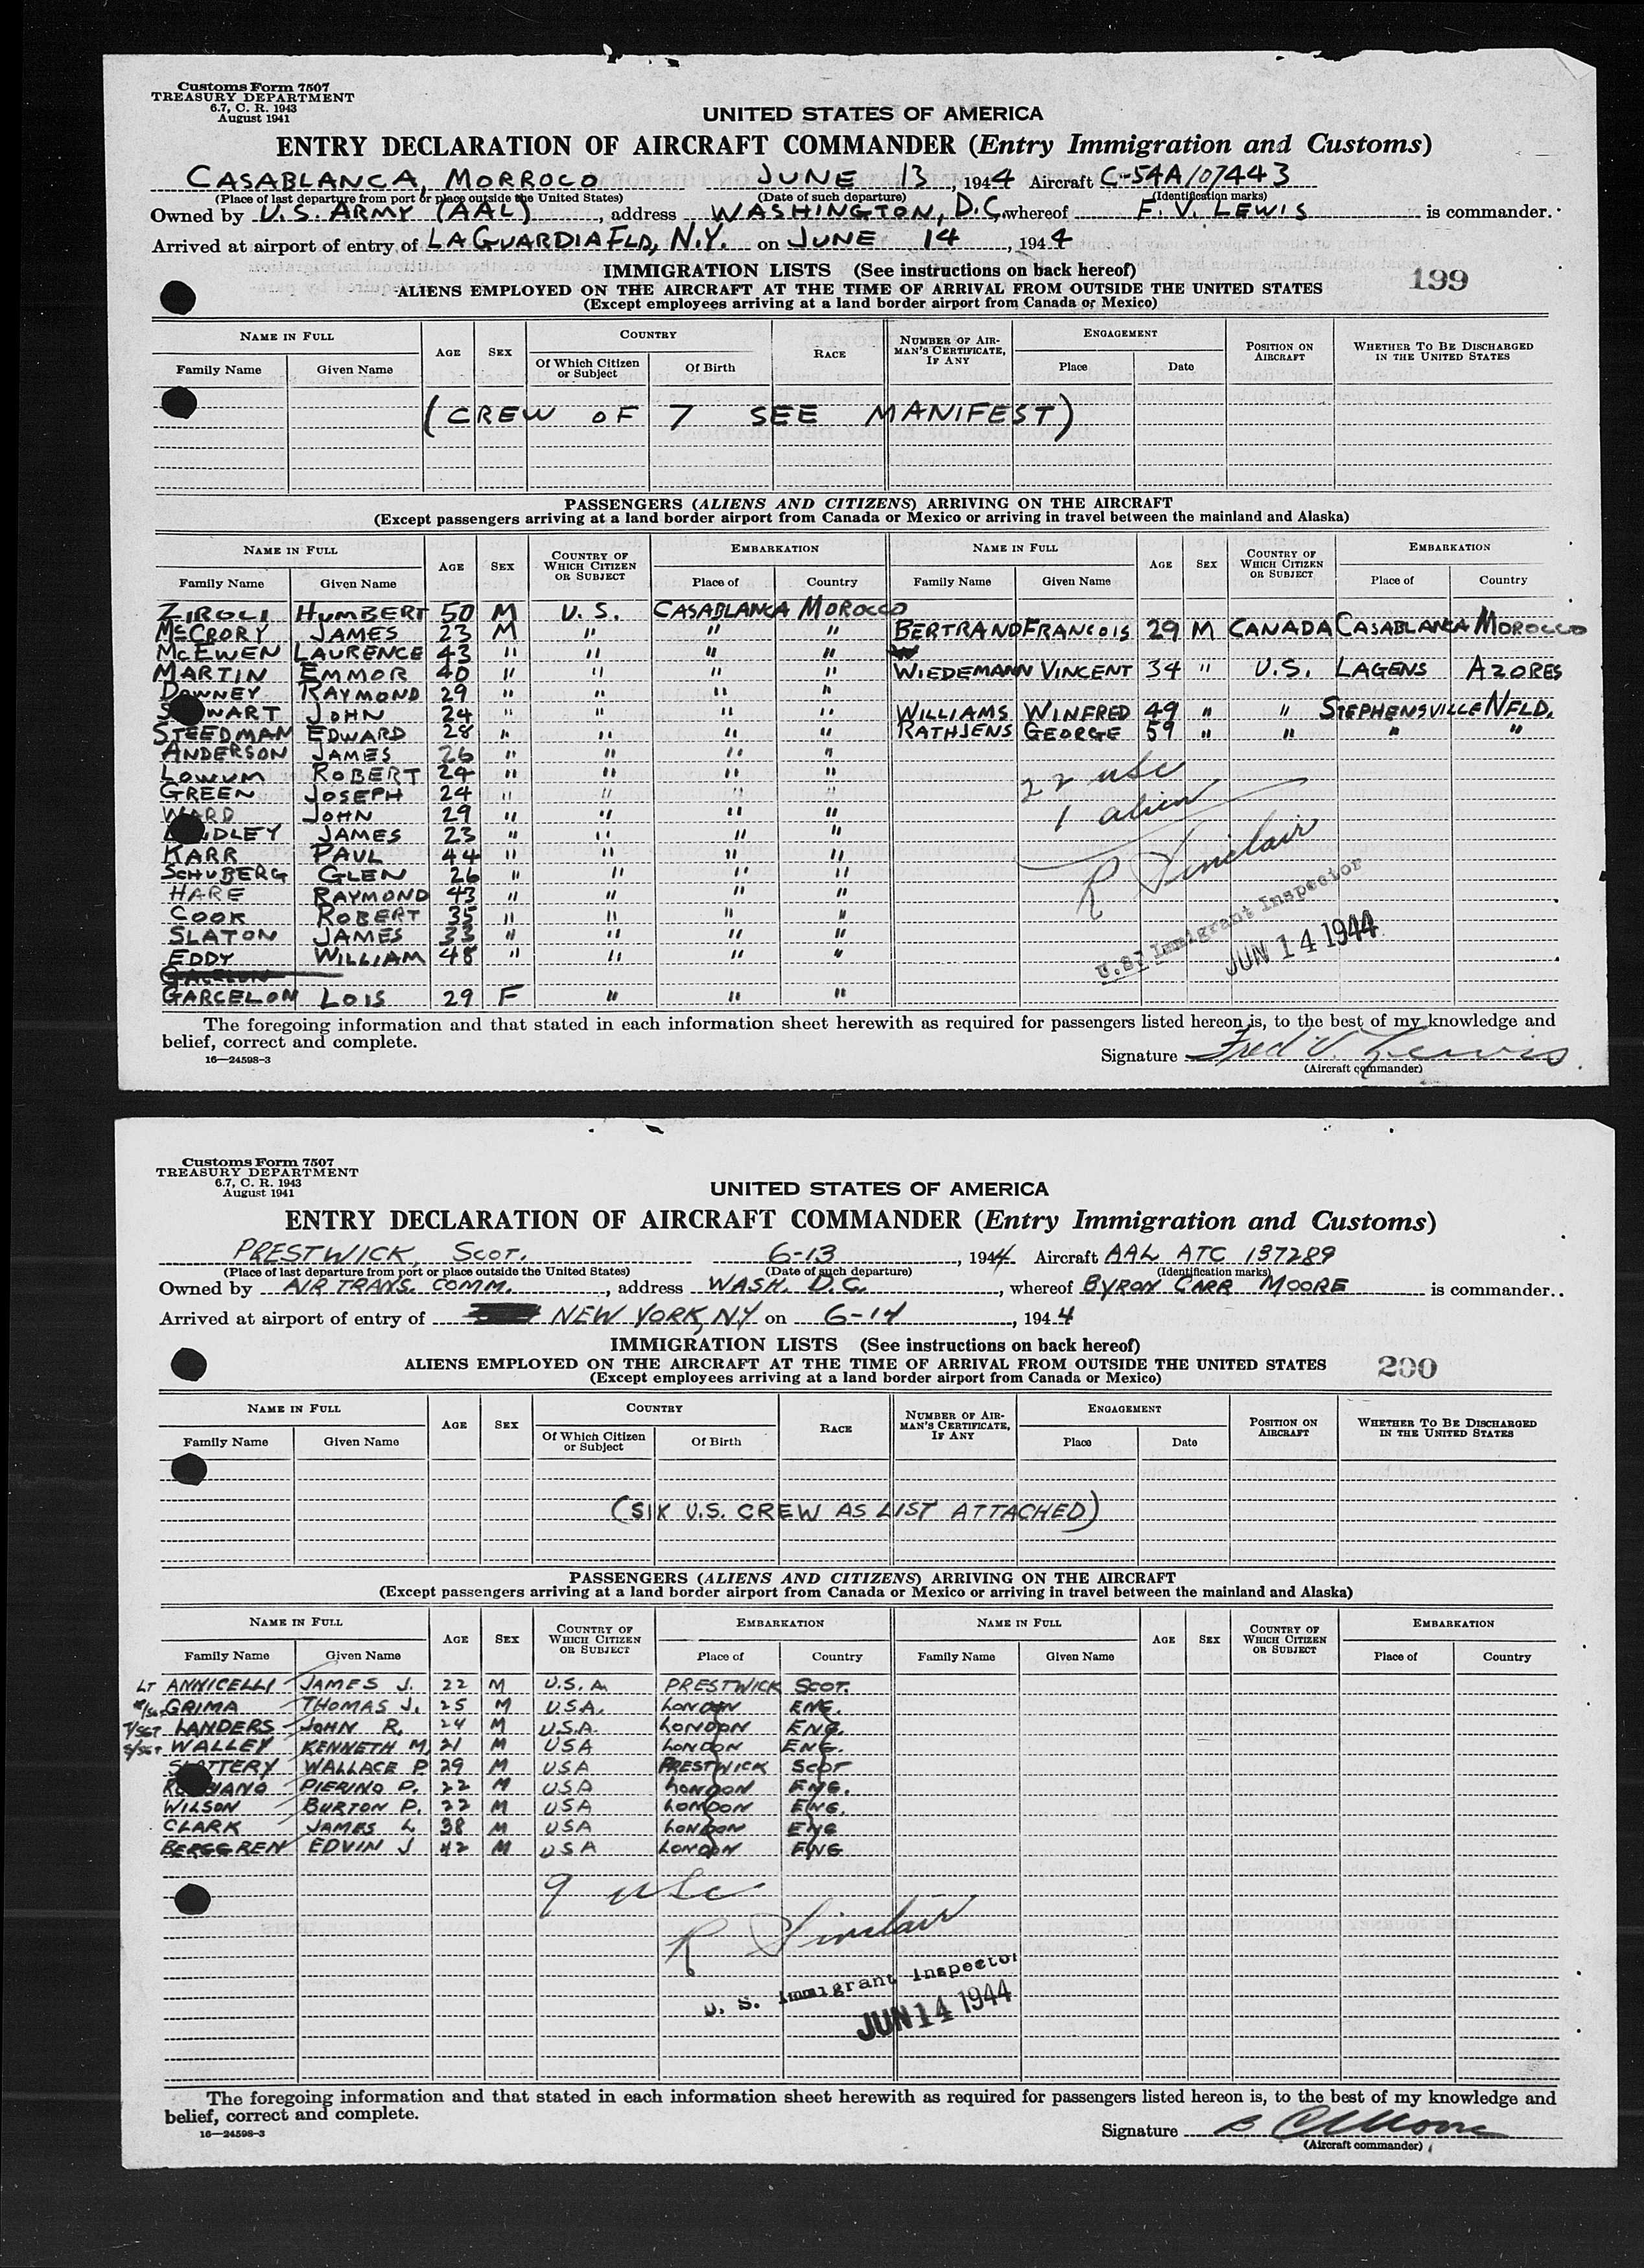 Customs Form 7507
TREASURY DEPARTMENT
6.7, C. R. 1943
August 1941
UNITED STATES OF AMERICA
ENTRY DECLARATION OF AIRCRAFT COMMANDER (Entry Immigration and Customs)
CASABLANCA, MORROCO JUNE 13, 1944 Aircraft C-54A/07443
(Place of last departure from port or place outside the United States) (Date of such departure) (Identification marks)
Owned by U.S. ARMY (AAL), address WASHINGTON, D.C. whereof F. V. LEWIS is commander.
Arrived at airport of entry of LAGUARDIA FLD, N.Y. on JUNE 14, 1944
IMMIGRATION LISTS (See instructions on back hereof)
199
ALIENS EMPLOYED ON THE AIRCRAFT AT THE TIME OF ARRIVAL FROM OUTSIDE THE UNITED STATES
(Except employees arriving at a land border airport from Canada or Mexico)
NAME IN FULL AGE SEX COUNTRY RACE NUMBER OF AIRMAN'S CERTIFICATE, IF ANY ENGAGEMENT POSITION ON AIRCRAFT WHETHER TO BE DISCHARGED IN THE UNITED STATES
Family Name Given Name Of Which Citizen or Subject Of Birth Place Date
(CREW OF 7 SEE MANIFEST)
PASSENGERS (ALIENS AND CITIZENS) ARRIVING ON THE AIRCRAFT
(Except passengers arriving at a land border airport from Canada or Mexico or arriving in travel between the mainland and Alaska)
NAME IN FULL AGE SEX COUNTRY OF WHICH CITIZEN OR SUBJECT EMBARKATION NAME IN FULL AGE SEX COUNTRY OF WHICH CITIZEN OR SUBJECT EMBARKATION
Family Name Given Name Place of Country Family Name Given Name Place of Country
ZIROLI HUMBERT 50 M U.S. CASABLANCA MOROCCO
McCRORY JAMES 23 M " " " BERTRAND FRANCOIS 29 M CANADA CASABLANCA MOROCCO
McEWEN LAURENCE 43 " " " "
MARTIN EMMOR 40 " " " " WIEDEMANN VINCENT 34 " U.S. LAGENS AZORES
DOWNEY RAYMOND 29 " " " "
JOHN 24 " " " " WILLIAMS WINFRED 49 " " STEPHENSVILLE NFLD.
STEEDMAN EDWARD 28 " " " " RATHJENS GEORGE 59 " " " "
ANDERSON JAMES 26 " " " "
LOWUM ROBERT 24 " " " " 22 usc
GREEN JOSEPH 24 " " " " 1 alien
WARD JOHN 29 " " " "
JAMES 23 " " " " R Sinclair
KARR PAUL 44 " " " "
SCHUBERG GLEN 26 " " " "
HARE RAYMOND 43 " " " " U.S. Immigrant Inspector
COOK ROBERT 35 " " " "
SLATON JAMES 33 " " " " JUN 14 1944
EDDY WILLIAM 48 " " " "
GARCELON LOIS 29 F " " "
The foregoing information and that stated in each information sheet herewith as required for passengers listed hereon is, to the best of my knowledge and
belief, correct and complete.
16—24598-3
Signature Fred V. Lewis
(Aircraft commander)
Customs Form 7507
TREASURY DEPARTMENT
6.7, C. R. 1943
August 1941
UNITED STATES OF AMERICA
ENTRY DECLARATION OF AIRCRAFT COMMANDER (Entry Immigration and Customs)
PRESTWICK, SCOT. 6-13, 1944 Aircraft AAL ATC 137289
(Place of last departure from port or place outside the United States) (Date of such departure) (Identification marks)
Owned by AIR TRANS. COMM., address WASH. D.C., whereof BYRON CARR MOORE is commander.
Arrived at airport of entry of NEW YORK, NY on 6-14, 1944
IMMIGRATION LISTS (See instructions on back hereof)
200
ALIENS EMPLOYED ON THE AIRCRAFT AT THE TIME OF ARRIVAL FROM OUTSIDE THE UNITED STATES
(Except employees arriving at a land border airport from Canada or Mexico)
NAME IN FULL AGE SEX COUNTRY RACE NUMBER OF AIRMAN'S CERTIFICATE, IF ANY ENGAGEMENT POSITION ON AIRCRAFT WHETHER TO BE DISCHARGED IN THE UNITED STATES
Family Name Given Name Of Which Citizen or Subject Of Birth Place Date
(SIX U.S. CREW AS LIST ATTACHED)
PASSENGERS (ALIENS AND CITIZENS) ARRIVING ON THE AIRCRAFT
(Except passengers arriving at a land border airport from Canada or Mexico or arriving in travel between the mainland and Alaska)
NAME IN FULL AGE SEX COUNTRY OF WHICH CITIZEN OR SUBJECT EMBARKATION NAME IN FULL AGE SEX COUNTRY OF WHICH CITIZEN OR SUBJECT EMBARKATION
Family Name Given Name Place of Country Family Name Given Name Place of Country
LT ANNICELLI JAMES J. 22 M U.S.A. PRESTWICK SCOT.
GRIMA THOMAS J. 25 M U.S.A. LONDON ENG.
T/SGT LANDERS JOHN R. 24 M U.S.A. LONDON ENG.
S/SGT WALLEY KENNETH M. 21 M USA LONDON ENG.
SLATTERY WALLACE P. 29 M USA PRESTWICK SCOT
PIERINO P. 22 M USA LONDON ENG.
WILSON BURTON P. 22 M USA LONDON ENG.
CLARK JAMES L. 38 M USA LONDON ENG
BERGGREN EDVIN J 42 M USA LONDON ENG
9 usc
R Sinclair
U. S. Immigrant Inspector
JUN 14 1944
The foregoing information and that stated in each information sheet herewith as required for passengers listed hereon is, to the best of my knowledge and
belief, correct and complete.
16—24598-3
Signature B C Moore
(Aircraft commander)